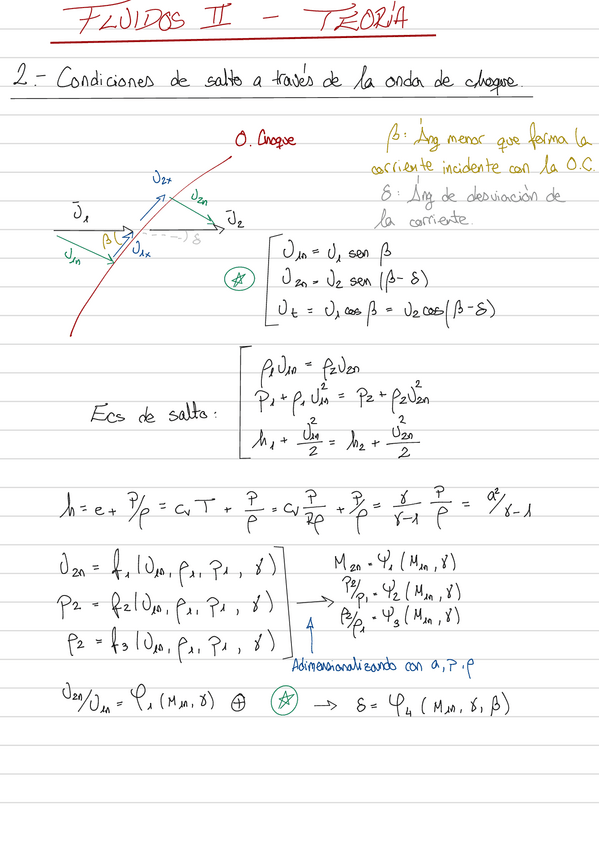 FLUIDOS II - TEORÍA
2.- Condiciones de salto a través de la onda de choque.
O. Choque
β: Áng menor que forma la
corriente incidente con la O.C.
δ: Áng de desviación de
la corriente.
U₂ₜ
U₂ₙ
Ū₁
Ū₂
β
δ
U₁ₜ
U₁ₙ
U₁ₙ = U₁ sen β
U₂ₙ = U₂ sen (β-δ)
Uₜ = U₁ cos β = U₂ cos(β-δ)
ρ₁U₁ₙ = ρ₂U₂ₙ
P₁ + ρ₁U₁ₙ² = P₂ + ρ₂U₂ₙ²
Ecs de salto:
h₁ + U₁ₙ²/2 = h₂ + U₂ₙ²/2
h = e + P/ρ = cᵥT + P/ρ = cᵥ P/Rρ + P/ρ = γ/γ-1 P/ρ = a²/γ-1
U₂ₙ = f₁(U₁ₙ, ρ₁, P₁, γ)
P₂ = f₂(U₁ₙ, ρ₁, P₁, γ)
ρ₂ = f₃(U₁ₙ, ρ₁, P₁, γ)
M₂ₙ = φ₁(M₁ₙ, γ)
P₂/P₁ = φ₂(M₁ₙ, γ)
ρ₂/ρ₁ = φ₃(M₁ₙ, γ)
Adimensionalizando con a, P, ρ
U₂ₙ/U₁ₙ = φ₁(M₁ₙ, γ) ⊕ ☆ → δ = φ₄(M₁ₙ, γ, β)